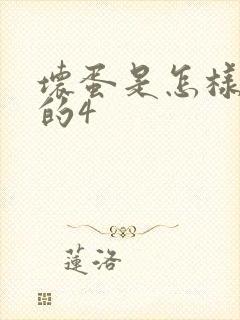 壞蛋是怎樣
的4
蓮洛